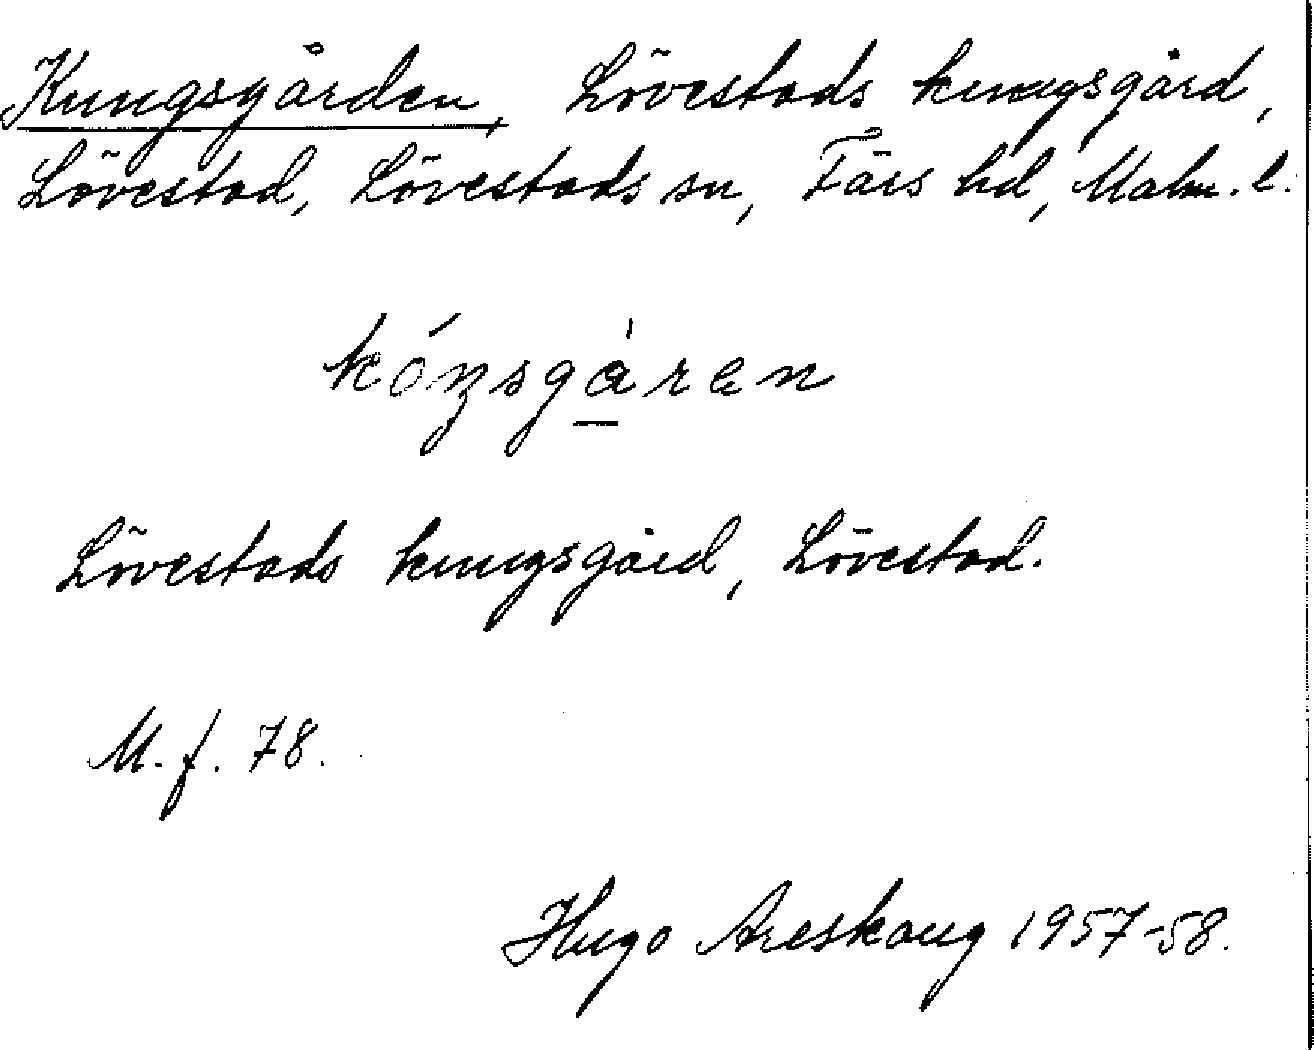 Kungsgården, Lövestads kungsgård,
Lövestad, Lövestads sn, Färs hd, Malm. l.
kóŋsgàren
Lövestads kungsgård, Lövestad.
M. f. 78.
Hugo Areskoug 1957-58.